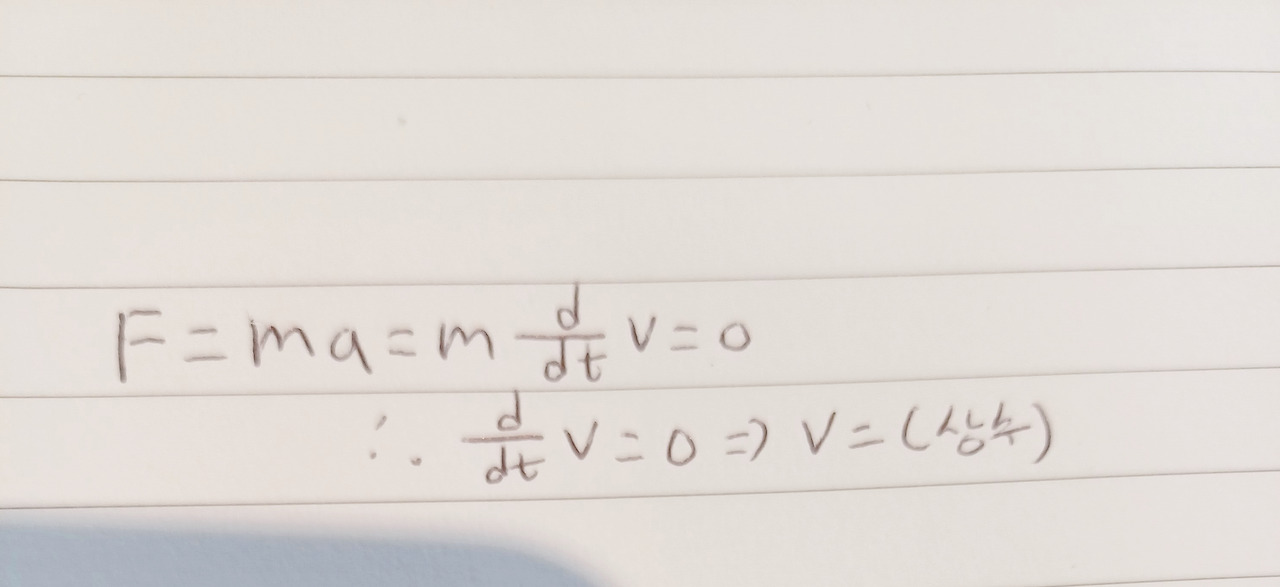 F = ma = m d/dt v = 0
∴ d/dt v = 0 ⇒ v = (상수)